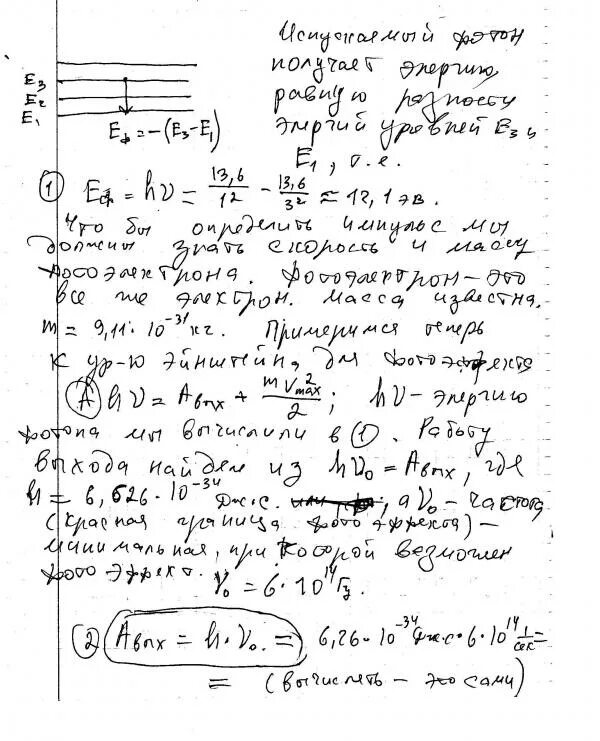 Испускаемый фотон
получает энергию
равную разности
энергий уровней E₃ и
E₁, т.е.
E₃
E₂
E₁
Eф = -(E₃-E₁)
① Eф = hν = 13,6/1² - 13,6/3² ≈ 12,1 эв.
Что бы определить импульс мы
должны знать скорость и массу
фотоэлектрона. Фотоэлектрон - это
все же электрон. Масса известна.
m = 9,11·10⁻³¹ кг. Примеримся теперь
к ур-ю Эйнштейна для фотоэффекта
Ⓐ hν = Aвых + mV²max/2; hν - энергию
фотона мы вычислили в ①. Работу
выхода найдем из hν₀ = Aвых, где
h = 6,626·10⁻³⁴ Дж·с. , а ν₀ - частота
(красная граница фотоэффекта) -
минимальная, при которой возможен
фотоэффект.
ν₀ = 6·10¹⁴ Гц.
② Aвых = h·ν₀ = 6,26·10⁻³⁴ Дж·с·6·10¹⁴ 1/сек =
= (вычислять - это сами)